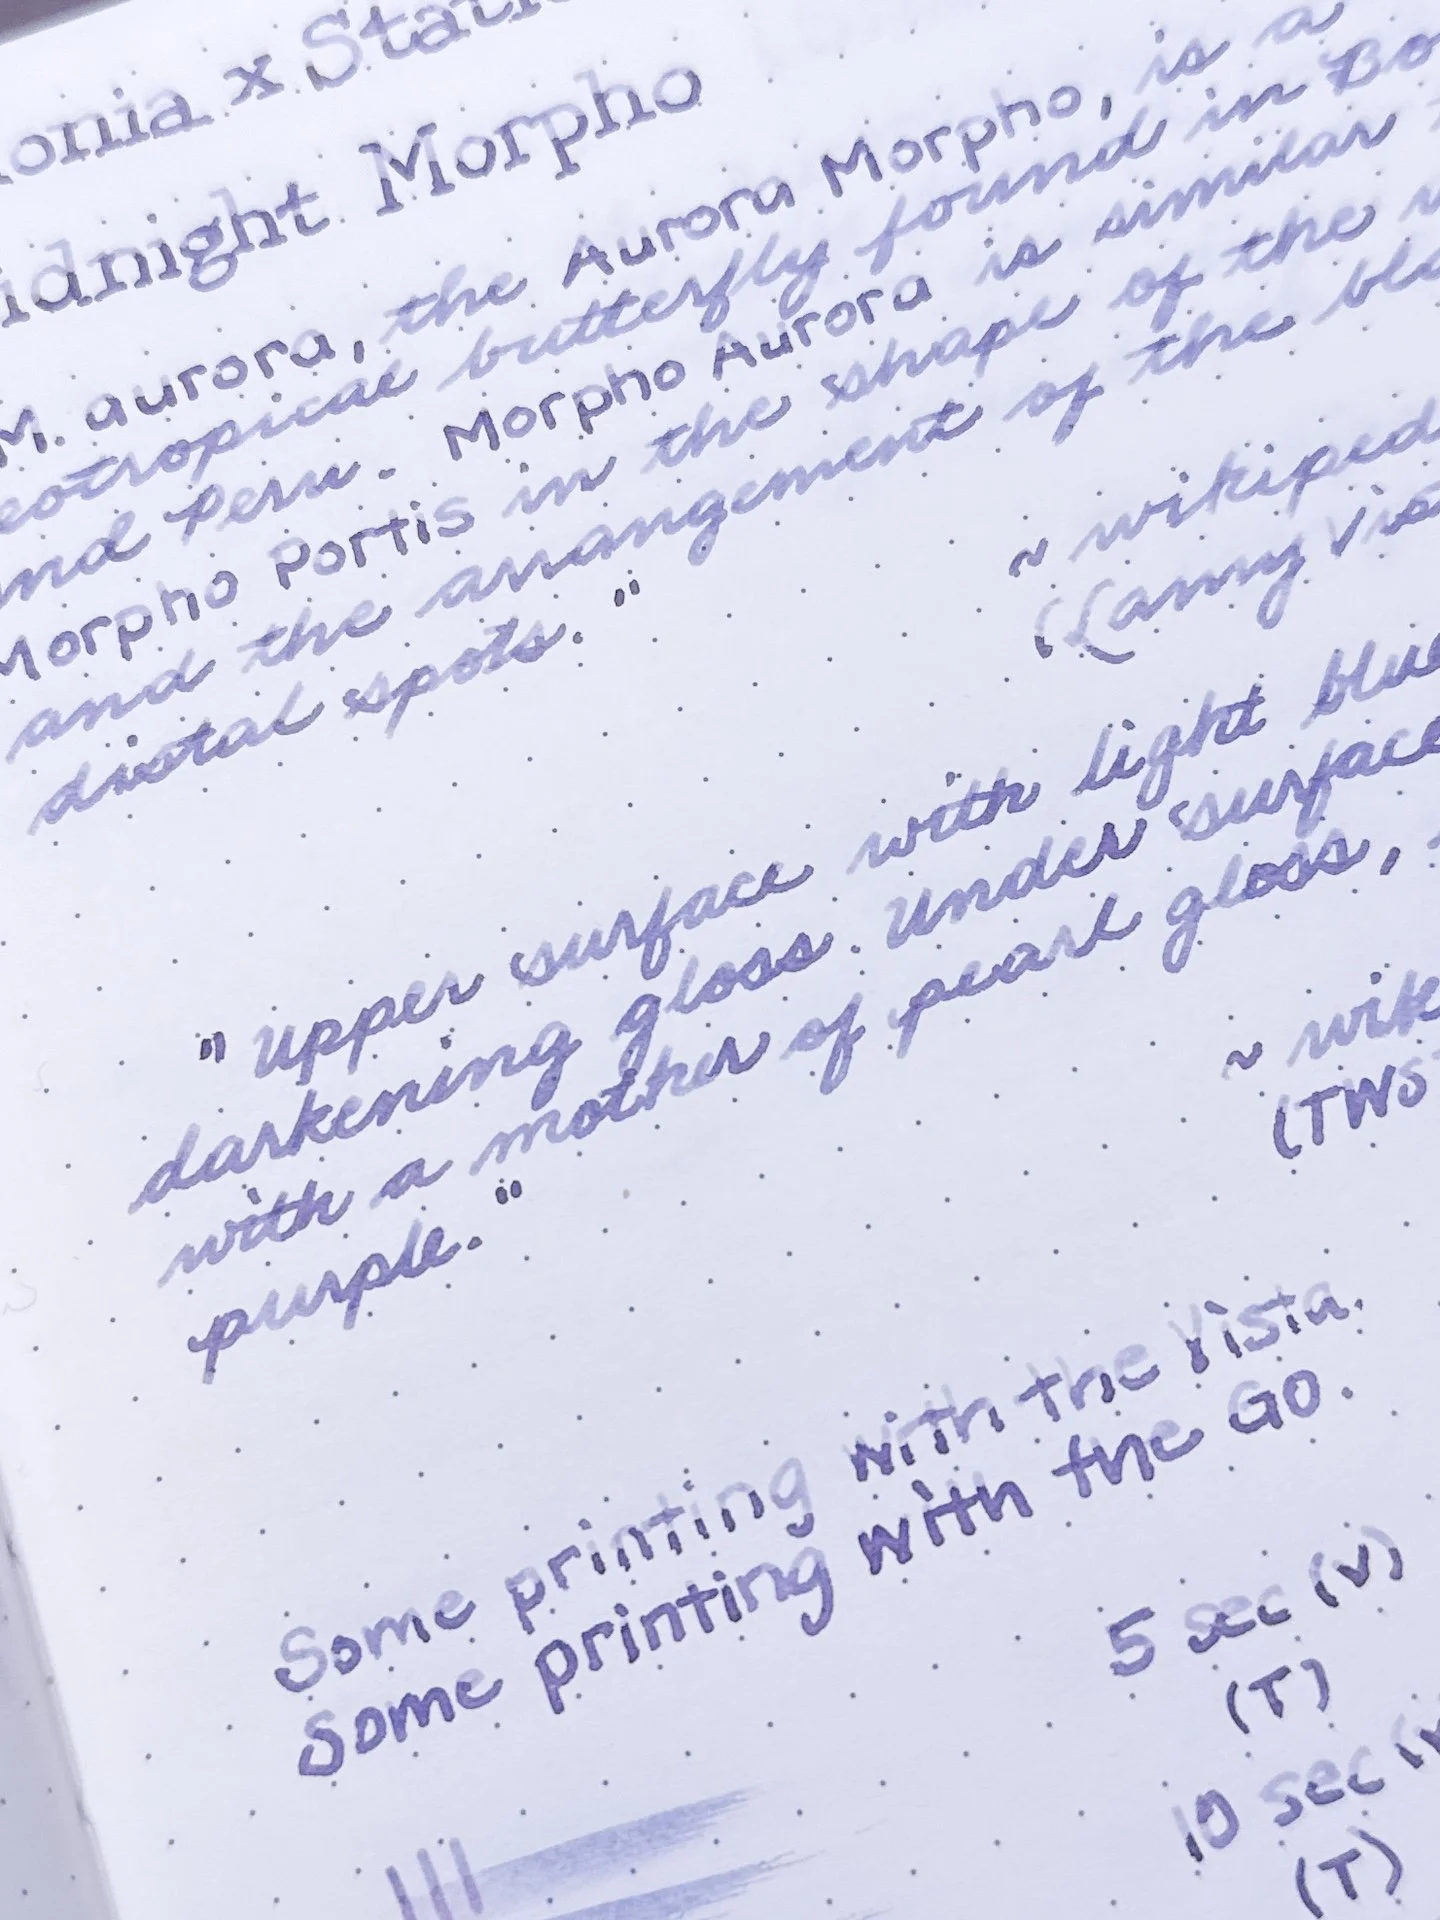 onia x Stati
idnight Morpho
M. aurora, the Aurora Morpho, is a
eotropical butterfly found in Bo
and Peru. Morpho Aurora is similar
Morpho Portis in the shape of the
and the arrangement of the bla
distal spots."
~ wikiped
(Lamy Vist
"Upper surface with light blue
darkening gloss. Under surface
with a mother of pearl gloss,
purple."
~ wik
(TWS
Some printing with the Vista.
Some printing with the GO.
5 sec (V)
(T)
10 sec (V
(T)